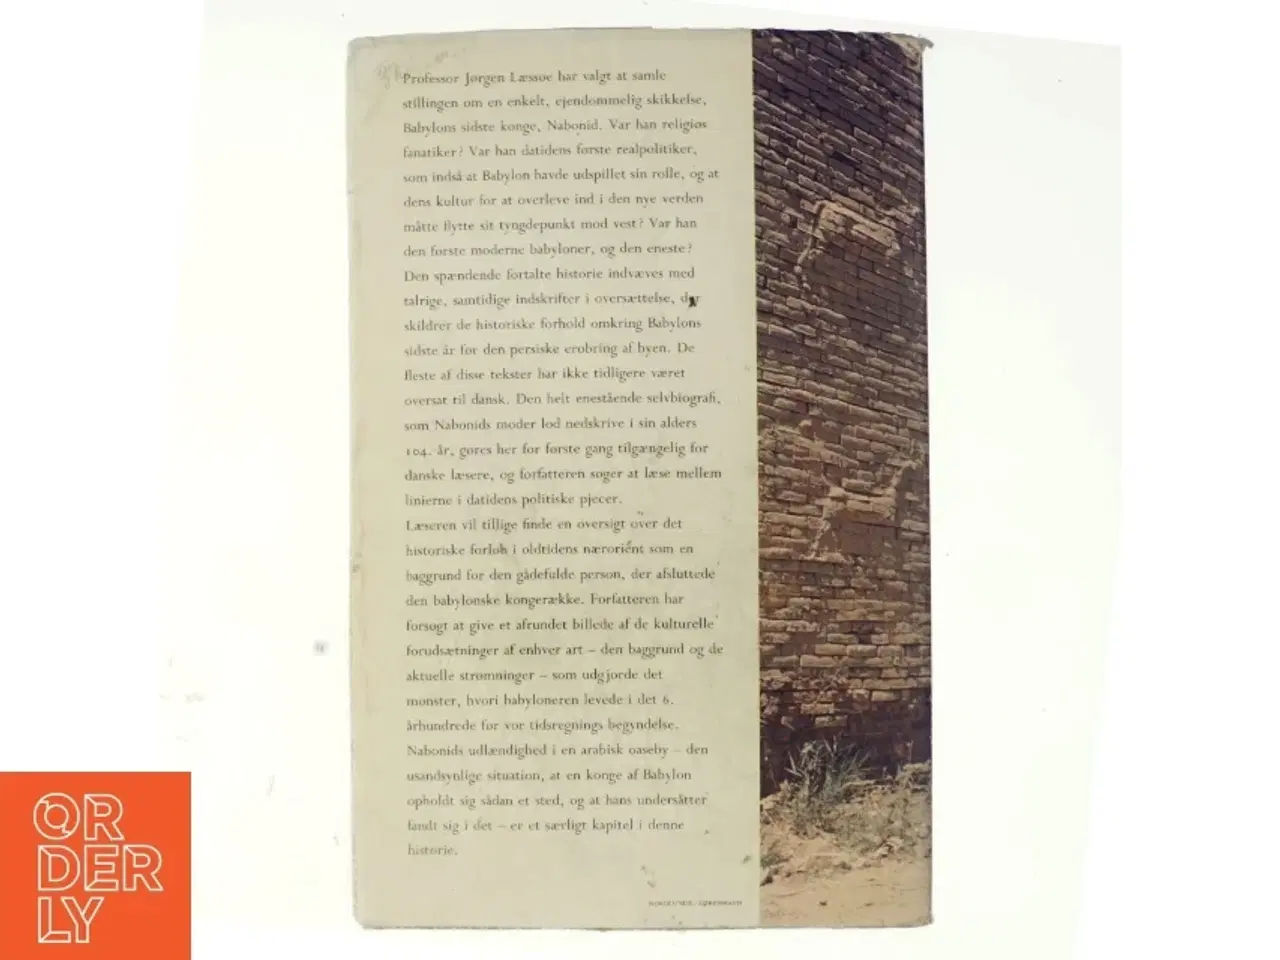 Professor Jørgen Læssøe har valgt at samle
stillingen om en enkelt, ejendommelig skikkelse,
Babylons sidste konge, Nabonid. Var han religiøs
fanatiker? Var han datidens første realpolitiker,
som indså at Babylon havde udspillet sin rolle, og at
dens kultur for at overleve ind i den nye verden
måtte flytte sit tyngdepunkt mod vest? Var han
den første moderne babyloner, og den eneste?
Den spændende fortalte historie indvæves med
talrige, samtidige indskrifter i oversættelse, der
skildrer de historiske forhold omkring Babylons
sidste år før den persiske erobring af byen. De
fleste af disse tekster har ikke tidligere været
oversat til dansk. Den helt enestående selvbiografi,
som Nabonids moder lod nedskrive i sin alders
104. år, gøres her for første gang tilgængelig for
danske læsere, og forfatteren søger at læse mellem
linierne i datidens politiske pjecer.
Læseren vil tillige finde en oversigt over det
historiske forløb i oldtidens nærorient som en
baggrund for den gådefulde person, der afsluttede
den babylonske kongerække. Forfatteren har
forsøgt at give et afrundet billede af de kulturelle
forudsætninger af enhver art – den baggrund og de
aktuelle strømninger – som udgjorde det
mønster, hvori babyloneren levede i det 6.
århundrede før vor tidsregnings begyndelse.
Nabonids udlændighed i en arabisk oaseby – den
usandsynlige situation, at en konge af Babylon
opholdt sig sådan et sted, og at hans undersåtter
fandt sig i det – er et særligt kapitel i denne
historie.
ORDERLY